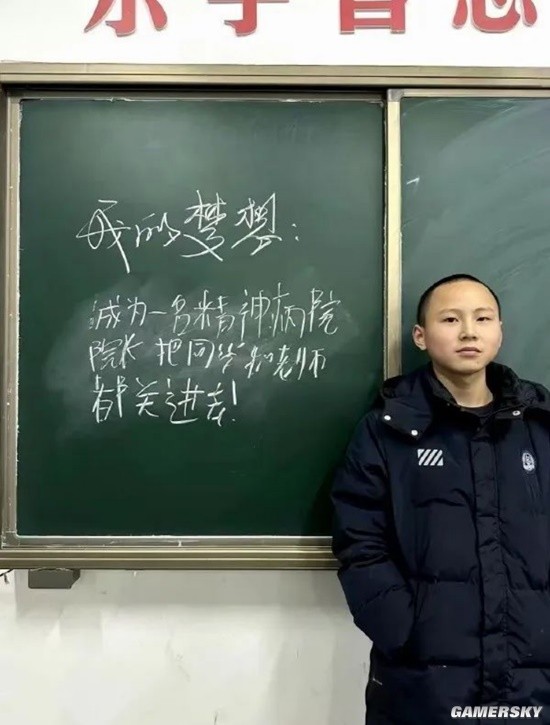 乐学善思
我的梦想:
成为一名精神病院
院长 把同学和老师
都关进去!
GAMERSKY